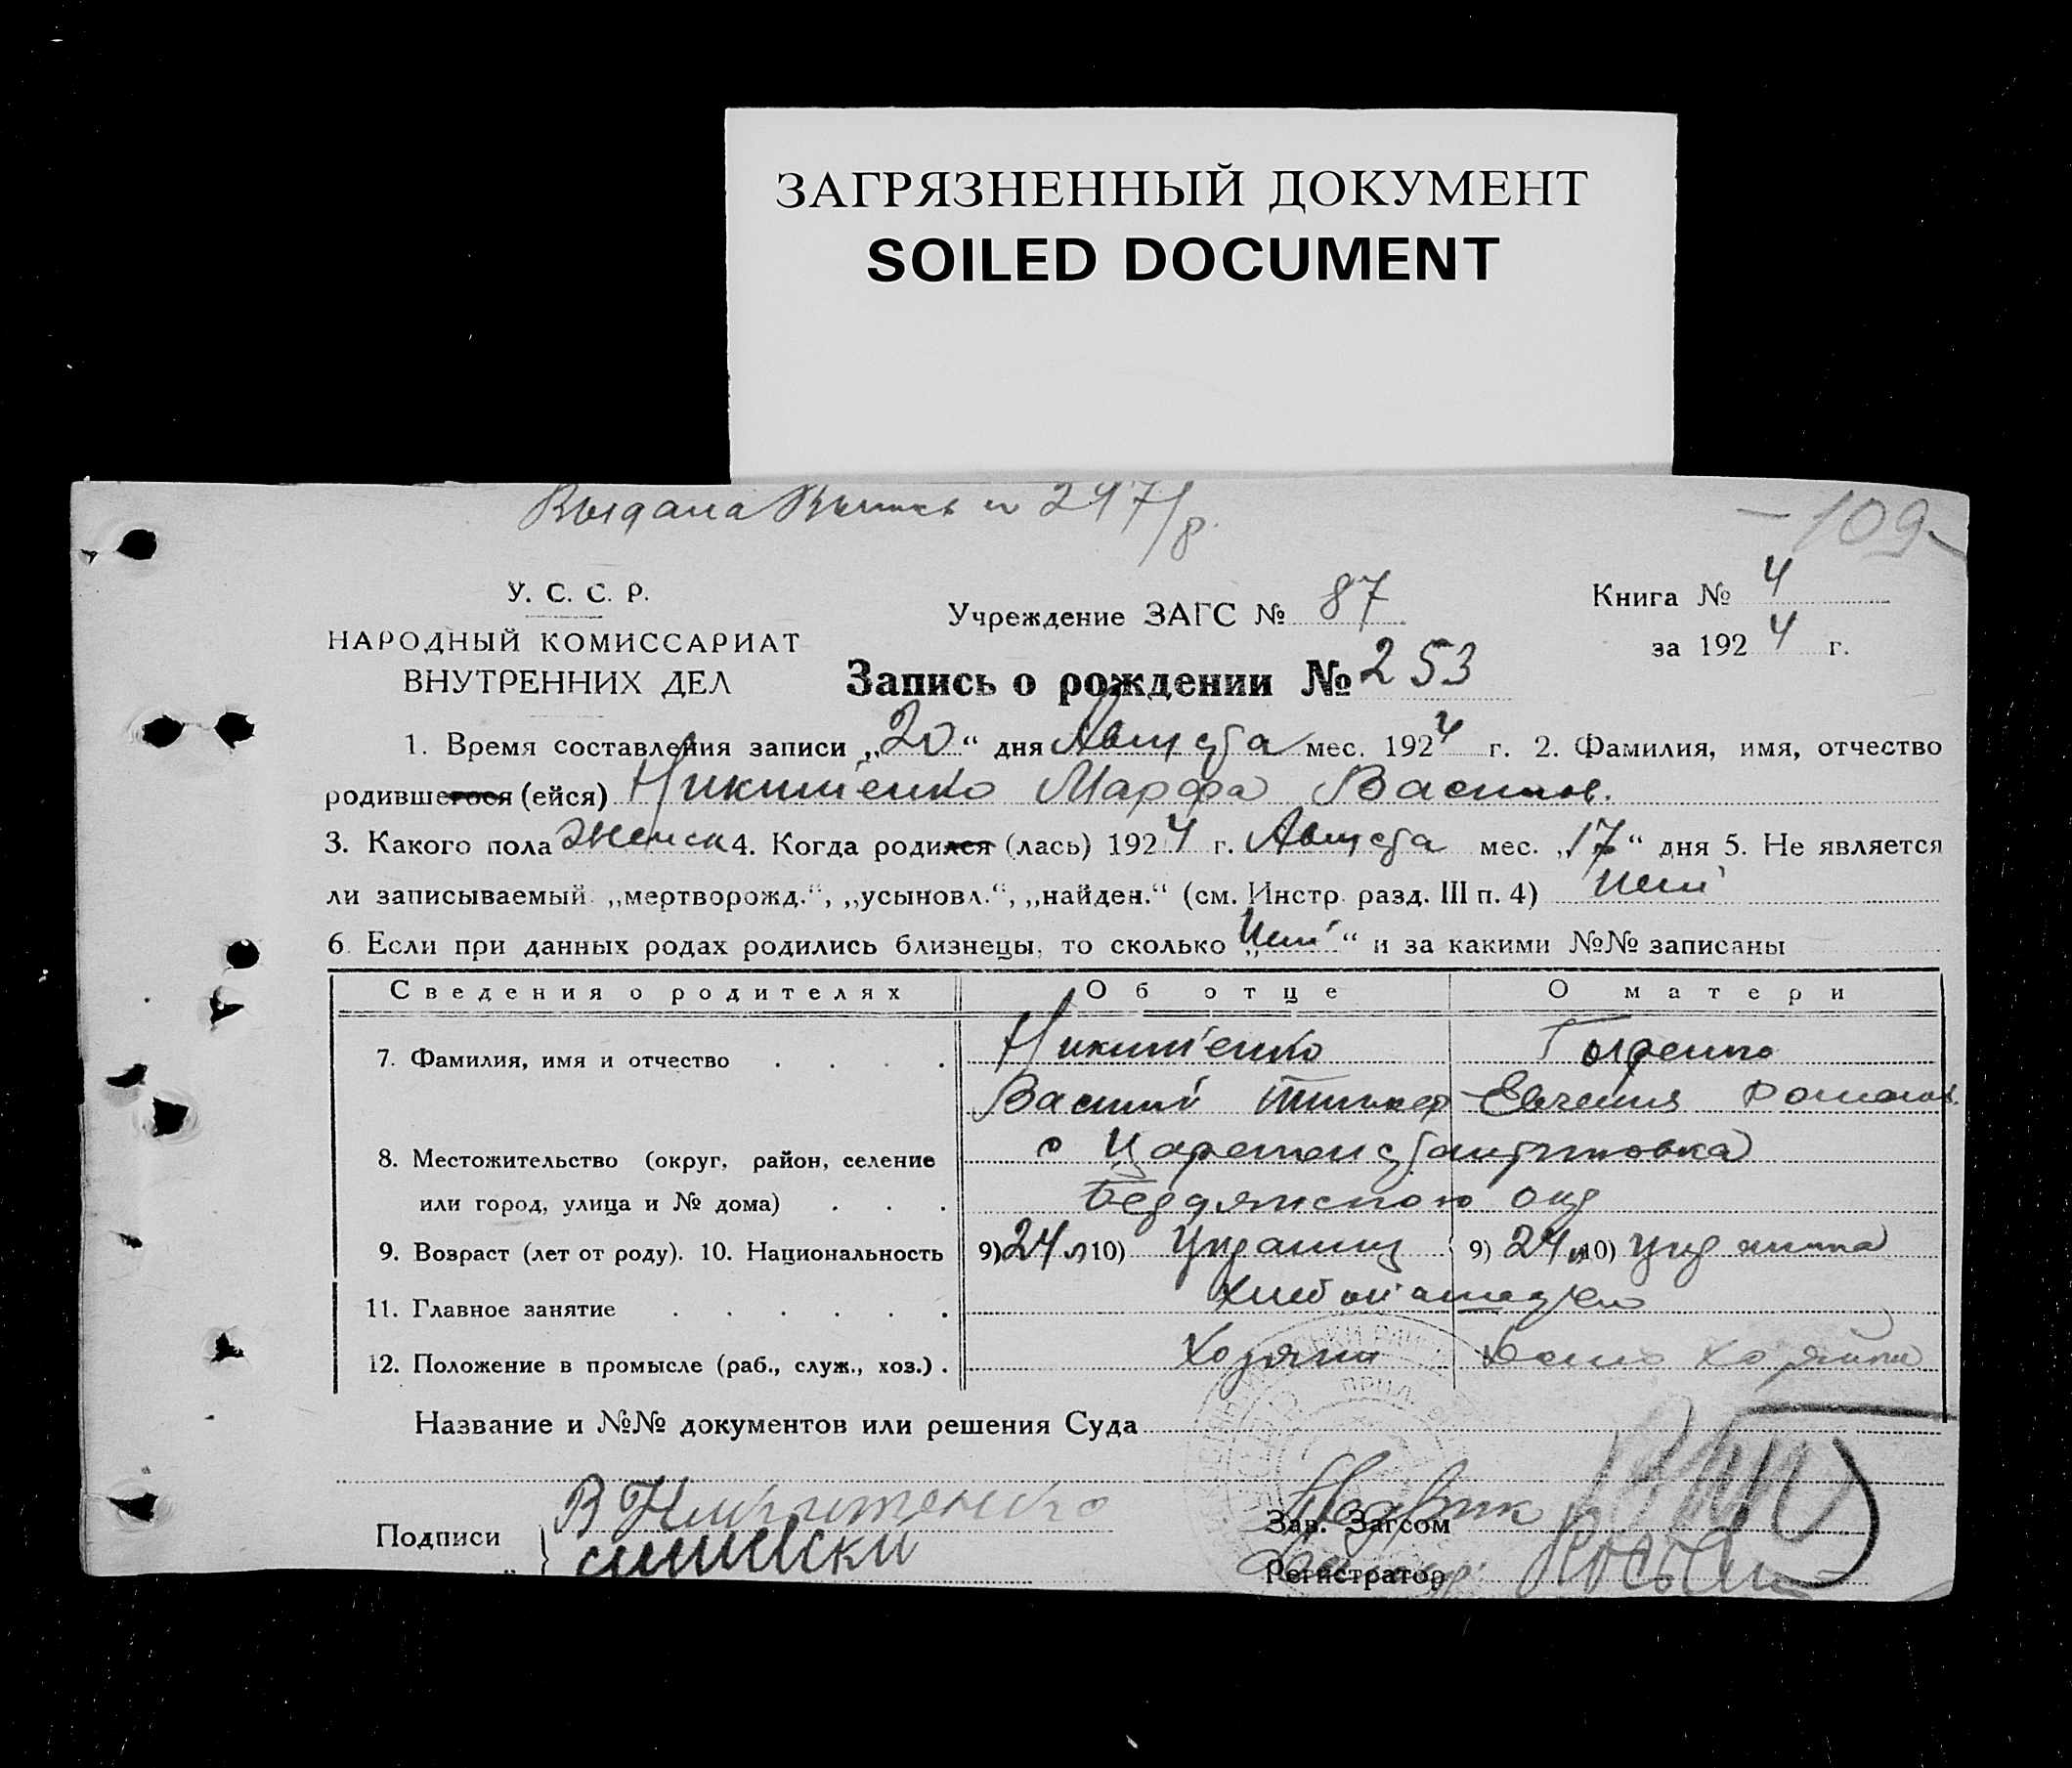 ЗАГРЯЗНЕННЫЙ ДОКУМЕНТ
SOILED DOCUMENT
Выдана Выпись № 247/8.
– 109 –
У. С. С. Р.
НАРОДНЫЙ КОМИССАРИАТ
ВНУТРЕННИХ ДЕЛ
Учреждение ЗАГС № 87
Книга № 4
за 1924 г.
Запись о рождении № 253
1. Время составления записи „20“ дня Августа мес. 1924 г. 2. Фамилия, имя, отчество
родившегося (ейся) Никитенко Марфа Васильев.
3. Какого пола женск 4. Когда родился (лась) 1924 г. Августа мес. „17“ дня 5. Не является
ли записываемый „мертворожд.“, „усыновл.“, „найден.“ (см. Инстр. разд. III п. 4) нет
6. Если при данных родах родились близнецы, то сколько „нет“ и за какими №№ записаны
Сведения о родителях Об отце О матери
7. Фамилия, имя и отчество . . . . Никитенко
Василий Евгения Роман.
8. Местожительство (округ, район, селение с Цареконстантиновка
или город, улица и № дома) . . . Бердянского окр
9. Возраст (лет от роду). 10. Национальность 9) 24 л 10) Украинц 9) 24 л 10) Украинка
11. Главное занятие . . . . . . хлебопашество
12. Положение в промысле (раб., служ., хоз.) . Хозяин Хозяина
Название и №№ документов или решения Суда
Подписи В Никитенко
Зав. Загсом
Регистратор